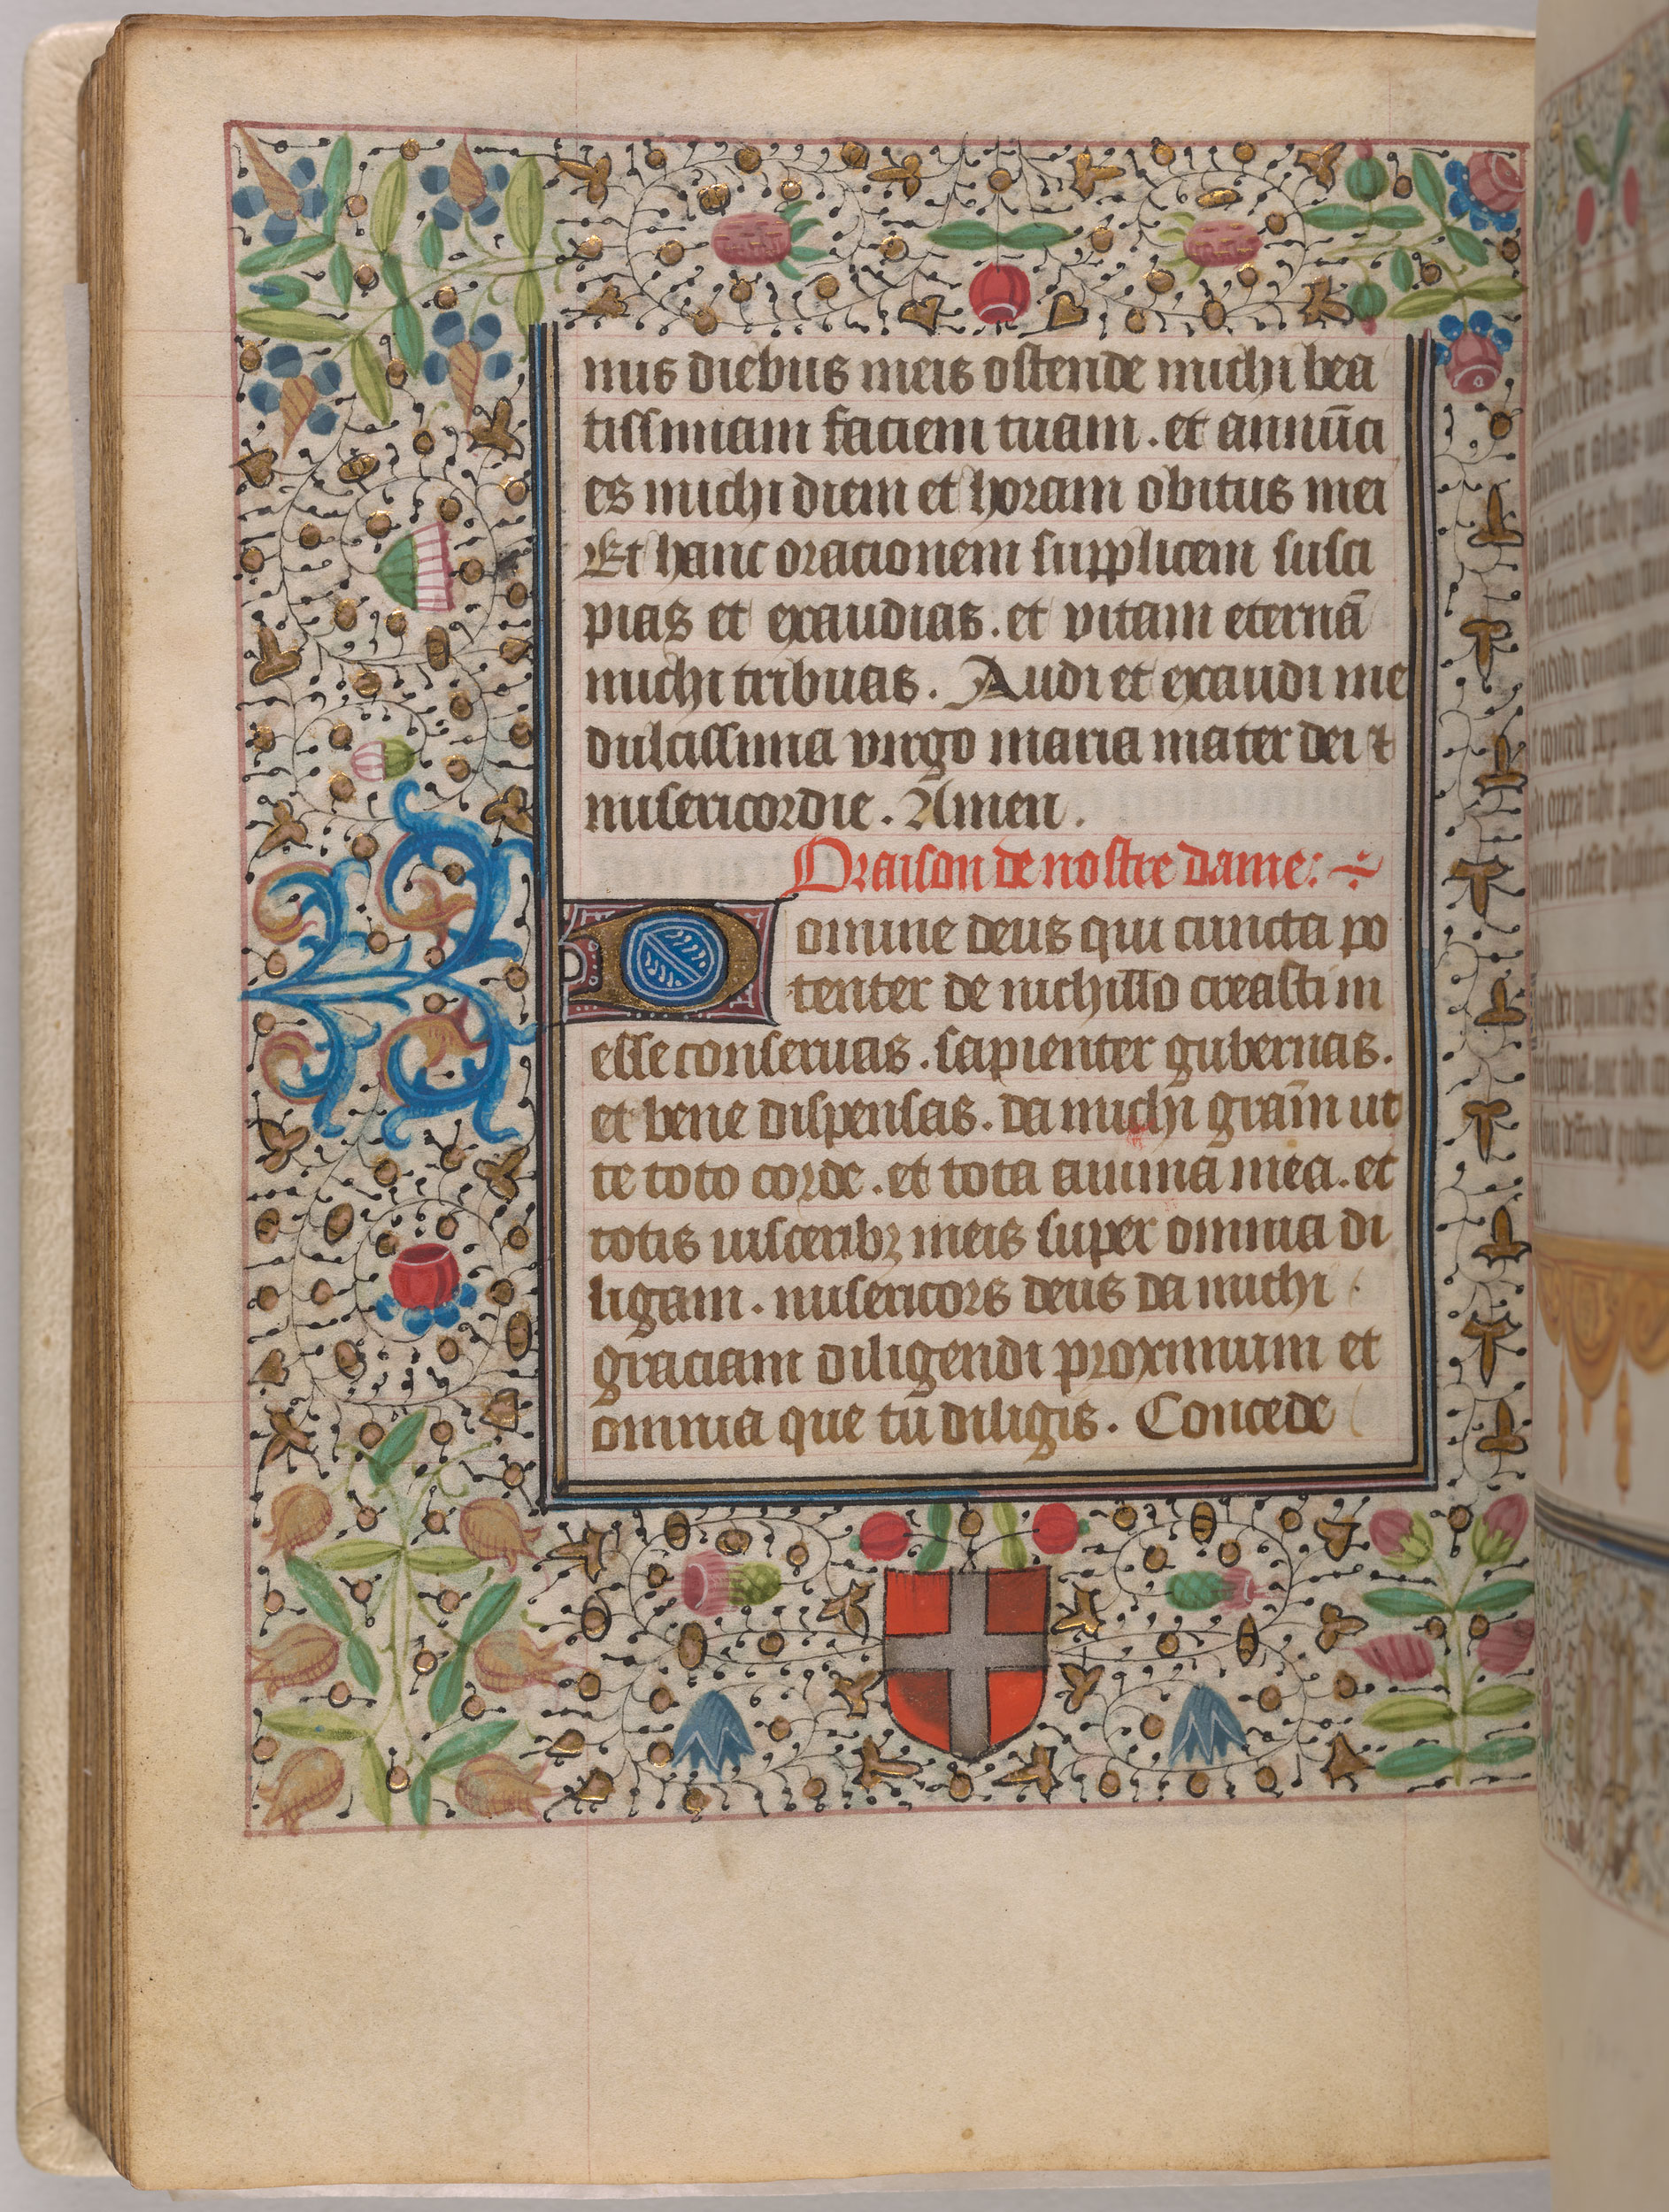 mis diebus meis ostende michi bea
tissimam faciem tuam . et annūci
es michi diem et horam obitus mei
Et hanc oracionem supplicem susci
pias et exaudias . et vitam eternā
michi tribuas . Audi et exaudi me
dulcissima virgo maria mater dei ⁊
misericordie . Amen .
Oraison de nostre dame :
Domine deus qui cuncta po
tenter de nichillo creasti in
esse conseruas . sapienter gubernas .
et bene dispensas . da michi grām ut
te toto corde . et tota anima mea . et
totis uisceribꝫ meis super omnia di
ligam . misericors deus da michi
graciam diligendi proximum et
omnia que tu diligis . Concede